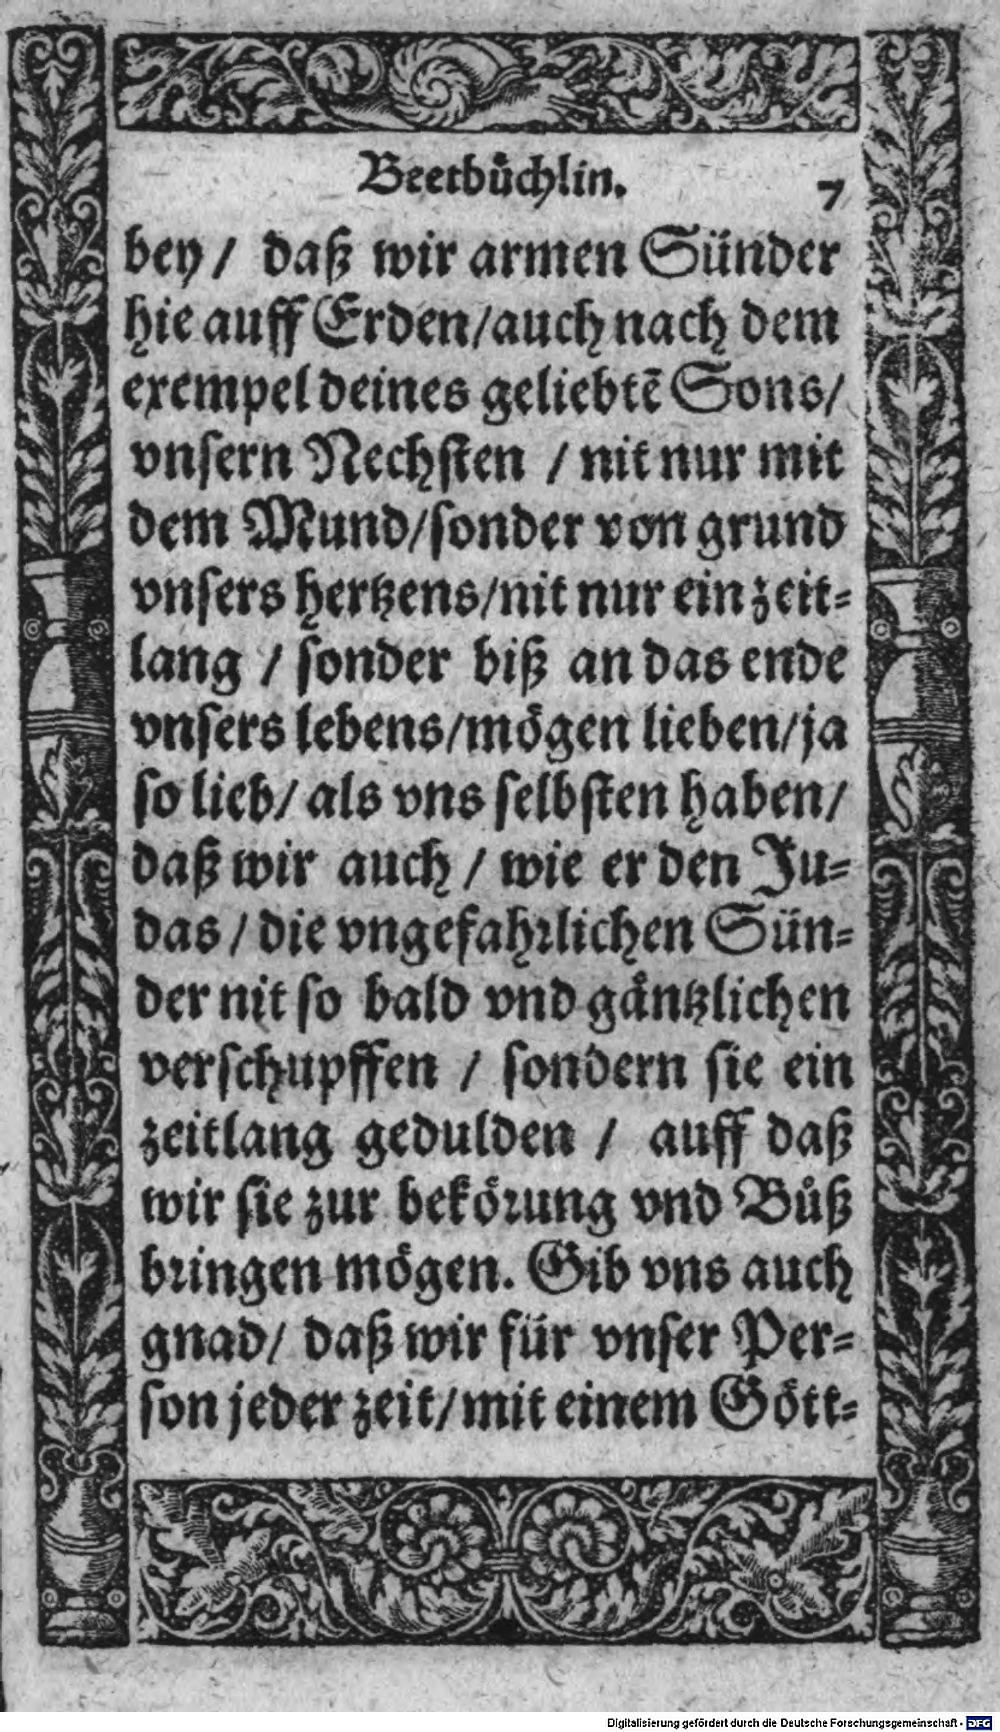 Beetbuͤchlin. 7
bey / daß wir armen Sünder
hie auff Erden/auch nach dem
exempel deines geliebtē Sons/
vnsern Nechsten / nit nur mit
dem Mund/sonder von grund
vnsers hertzens/nit nur ein zeit⸗
lang / sonder biß an das ende
vnsers lebens/moͤgen lieben/ja
so lieb/ als vns selbsten haben/
daß wir auch / wie er den Ju⸗
das / die vngefahrlichen Sün⸗
der nit so bald vnd gaͤntzlichen
verschupffen / sondern sie ein
zeitlang gedulden / auff daß
wir sie zur bekoͤrung vnd Buͦß
bringen moͤgen. Gib vns auch
gnad/ daß wir für vnser Per⸗
son jeder zeit/mit einem Goͤtt⸗
Digitalisierung gefördert durch die Deutsche Forschungsgemeinschaft - DFG